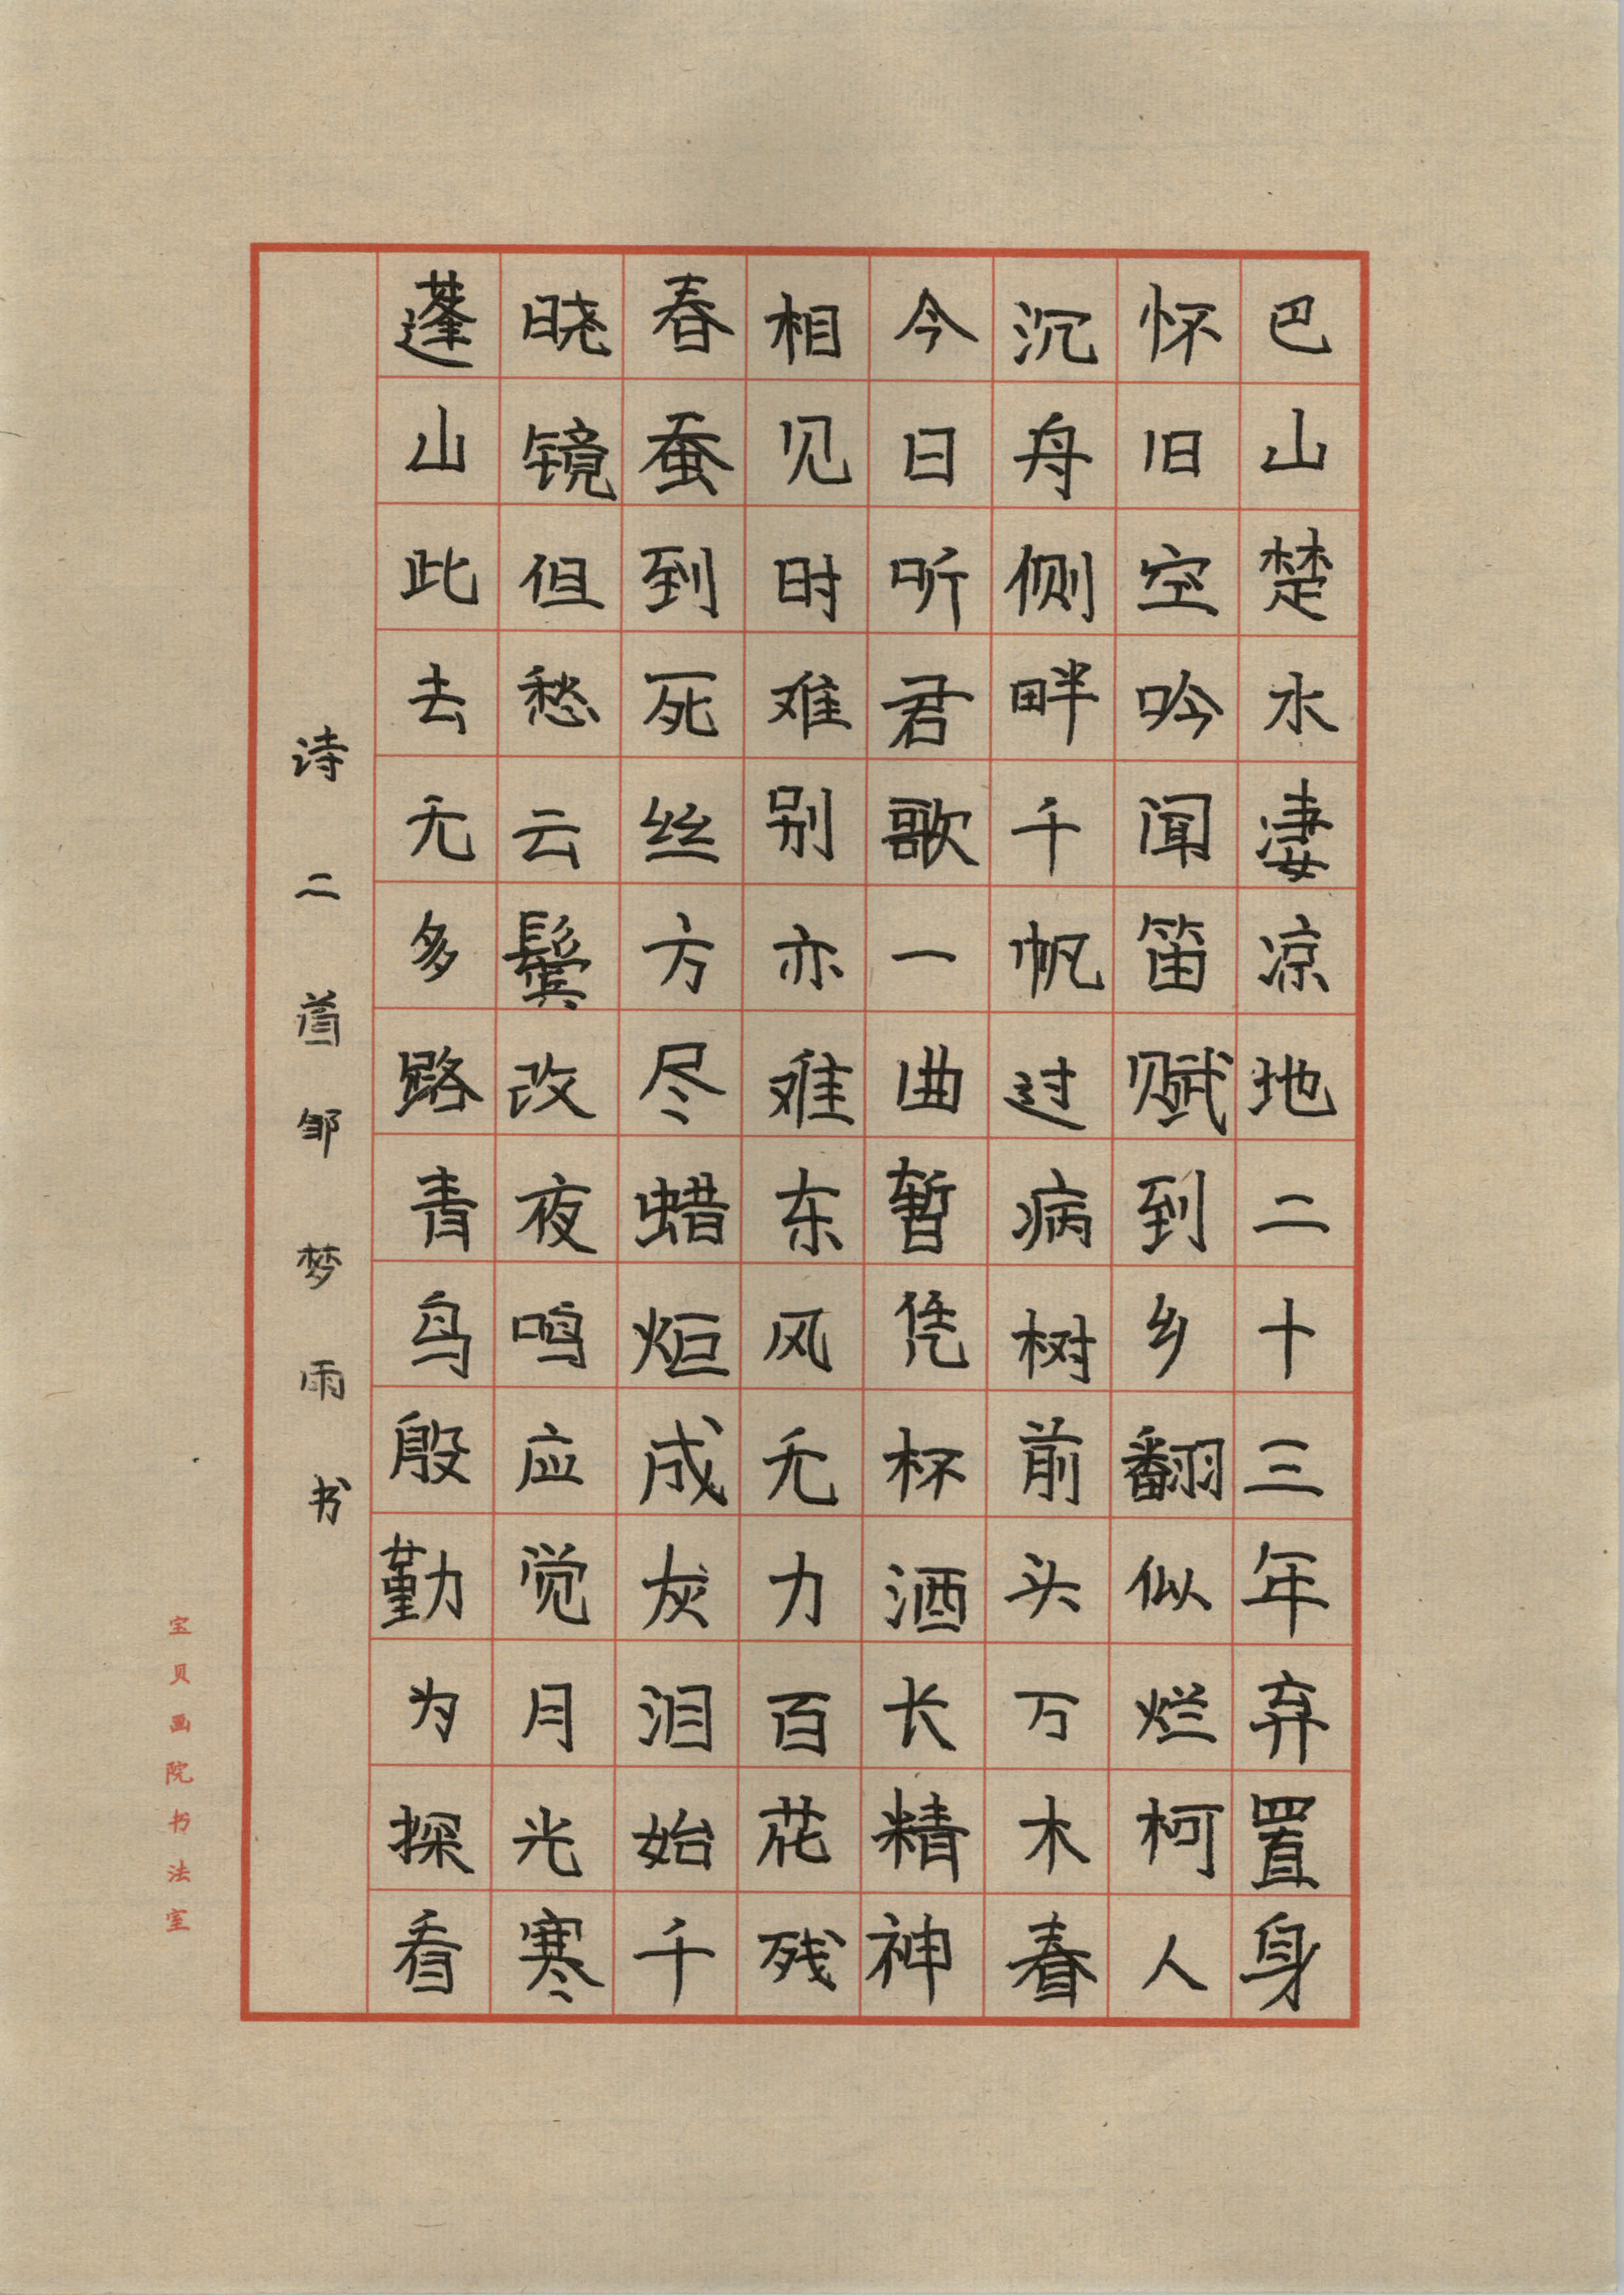 巴山楚水凄凉地二十三年弃置身
怀旧空吟闻笛赋到乡翻似烂柯人
沉舟侧畔千帆过病树前头万木春
今日听君歌一曲暂凭杯酒长精神
相见时难别亦难东风无力百花残
春蚕到死丝方尽蜡炬成灰泪始千
晓镜但愁云鬓改夜鸣应觉月光寒
蓬山此去无多路青鸟殷勤为探看
诗二首邹梦雨书
宝贝画院书法室